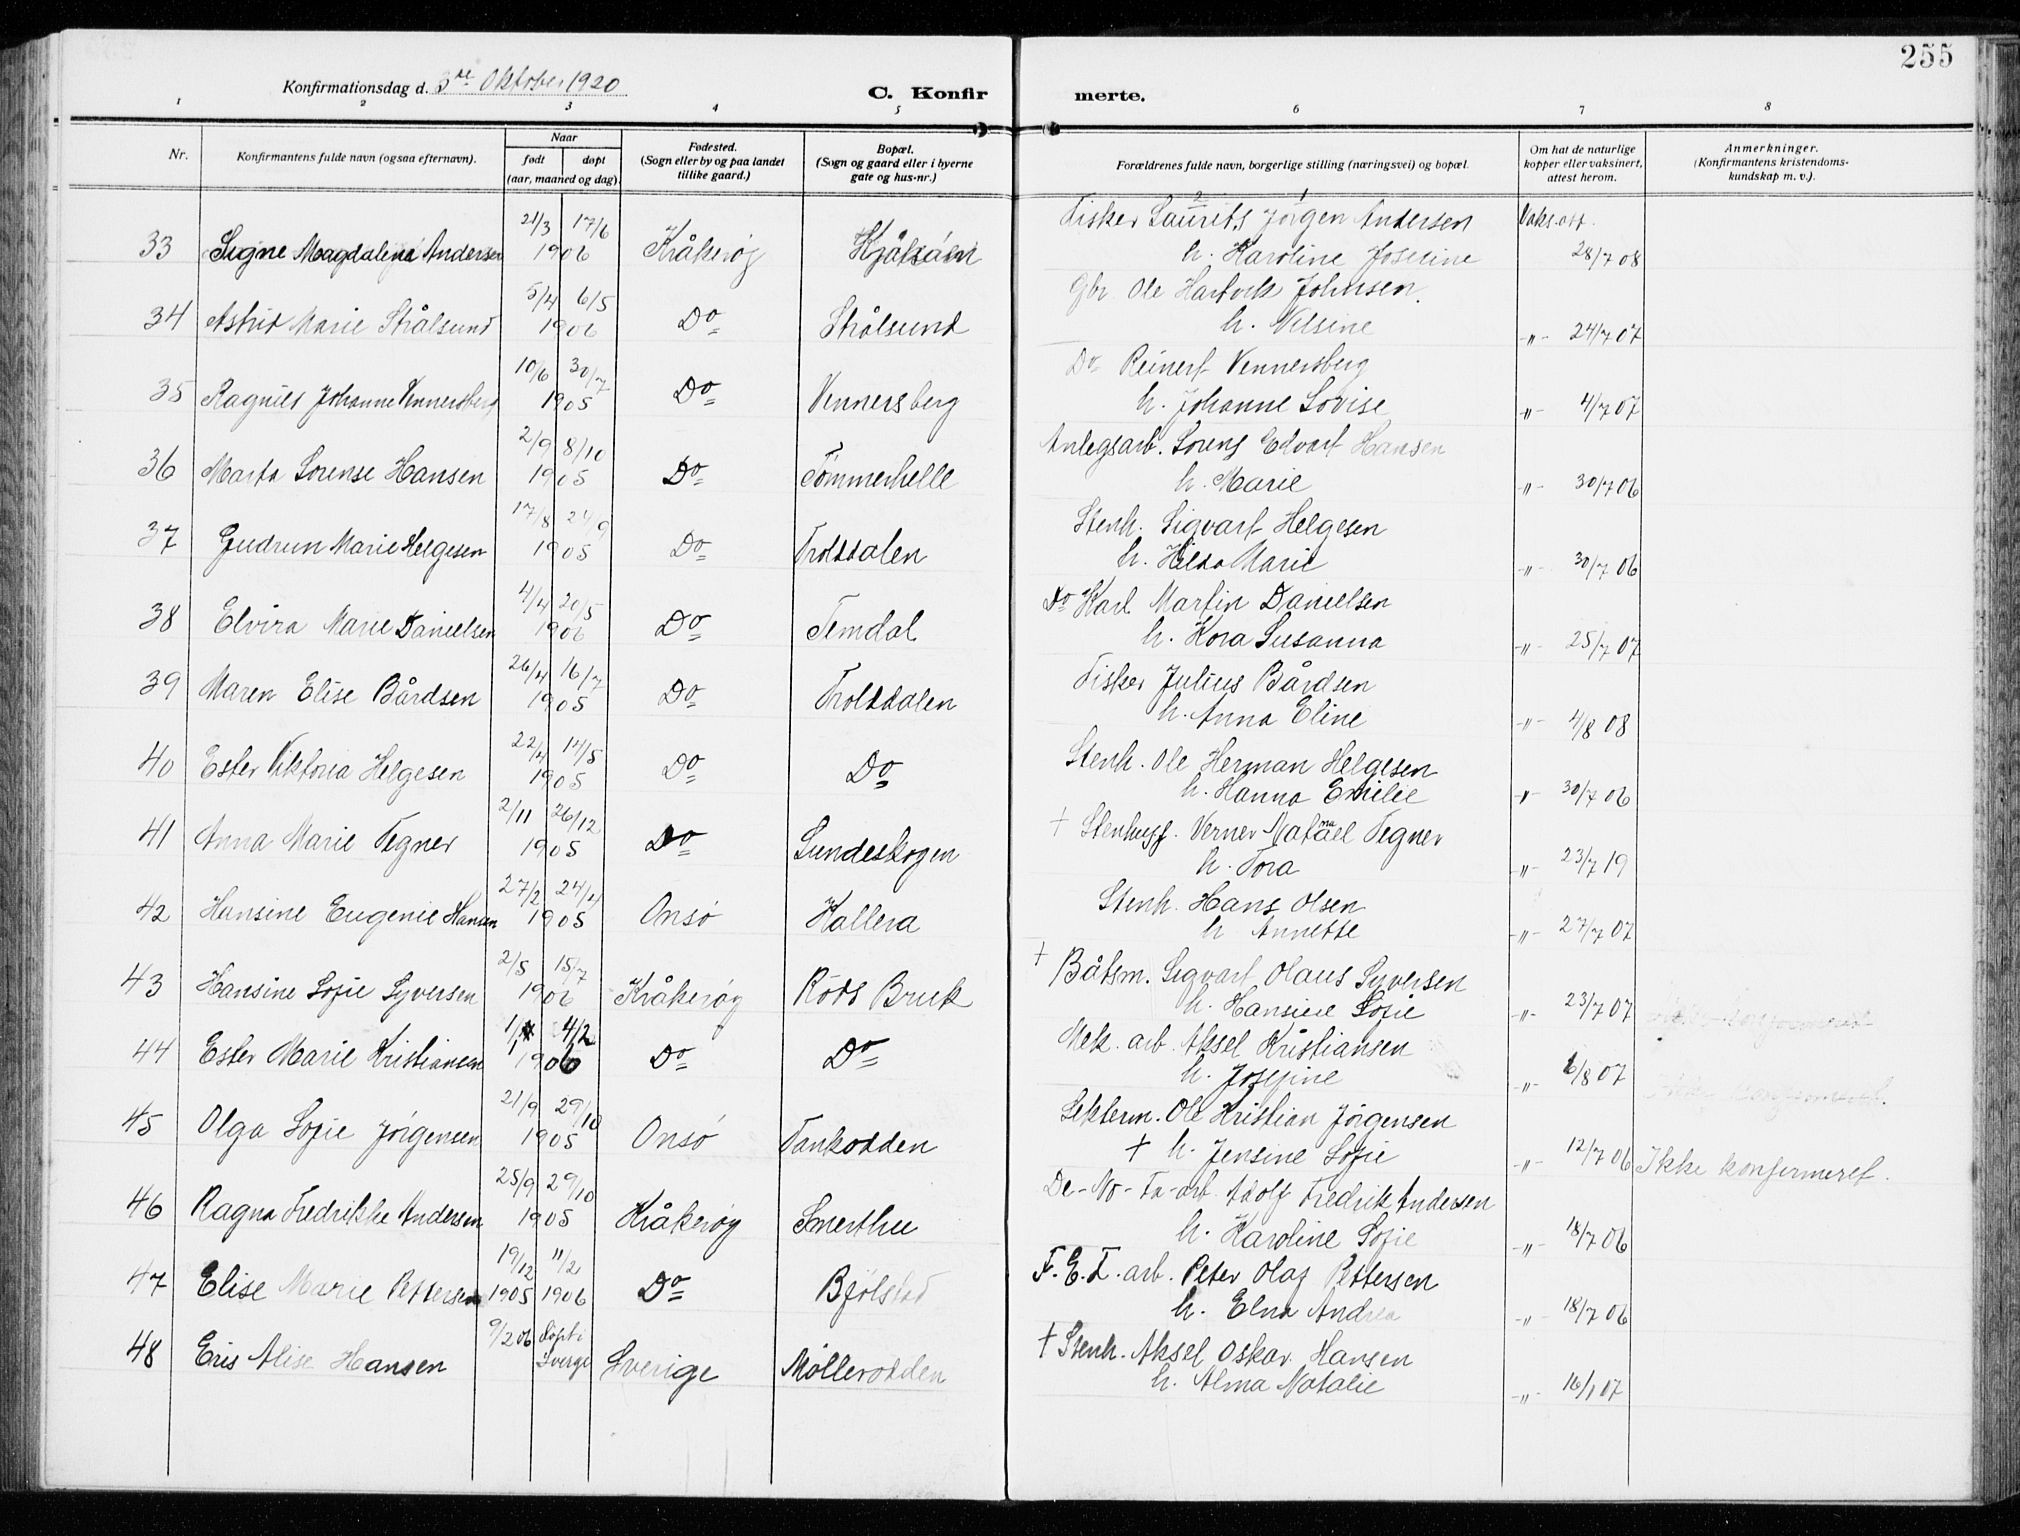 255
Konfirmationsdag d. 3de Oktober 1920
C. Konfir merte.
1 2 3 4 5 6 7 8
Nr.
Konfirmantens fulde navn (ogsaa efternavn).
Naar
født døpt
(aar, maaned og dag).
Fødested.
(Sogn eller by og paa landet
tillike gaard.)
Bopæl.
(Sogn og gaard eller i byerne
gate og hus-nr.)
Forældrenes fulde navn, borgerlige stilling (næringsvei) og bopæl.
Om hat de naturlige
kopper eller vaksinert,
attest herom.
Anmerkninger.
(Konfirmantens kristendoms-
kundskap m. v.).
2 1
21/3 17/6 Fisker Laurits Jørgen Andersen Vaks. att.
33 Signe Magdalena Andersen 1906 Kråkerøy h. Karoline Josefine 28/7 08
5/4 6/5 Gbr Ole Hartvik Johnsen.
34 Astrid Marie Strålsund 1906 Do Strålsund h. Nilsine -"- 24/7 07
10/6 30/7 Do Reinert Vennersberg
35 Ragnild Johanne Vennersberg 1905 Do Vennersberg h. Johanne Lovise -"- 4/7 07
2/9 8/10 Anlegsarb. Sørens Edvart Hansen
36 Marta Sorense Hansen 1905 Do Tømmerhelle h. Marie -"- 30/7 06
17/8 24/9 Stenh. Sigvart Helgesen
37 Gudrun Marie Helgesen 1905 Do Trolddalen h. Hilda Marie -"- 30/7 06
4/4 20/5 Do Karl Martin Danielsen
38 Elvira Marie Danielsen 1906 Do Femdal h. Kora Susanna -"- 25/7 07
26/4 16/7 Fisker Julius Bårdsen
39 Maren Elise Bårdsen 1905 Do Trolddalen h. Anna Eline -"- 4/8 08
22/4 14/5 Stenh. Ole Herman Helgesen
40 Ester Viktoria Helgesen 1905 Do Do h. Hanna Emilie -"- 30/7 06
2/11 26/12 + Stenhugg. Verner Natanael Tegner
41 Anna Marie Tegner 1905 Do Lundeskogen h. Tora -"- 23/7 19
27/2 24/4 Stenh. Hans Olsen
42 Hansine Eugenie Hansen 1905 Onsø Kallera h Annette -"- 27/7 07
2/5 15/7 + Båtsm. Sigvart Olaus Syversen
43 Hansine Sofie Syversen 1906 Kråkerøy Röds Bruk h. Hansine Sofie -"- 23/7 07
4/2 Mek. arb. Aksel Kristiansen
44 Ester Marie Kristiansen 1906 Do Do h. Josefine -"- 6/8 07
21/9 29/10 Lekterm. Ole Kristian Jørgensen
45 Olga Sofie Jørgensen 1905 Onsø Tankodden + h. Jensine Sofie -"- 12/7 06 Ikke konfirmeret.
25/9 29/10 De-No-Fa-arb. Adolf Fredrik Andersen
46 Ragna Fredrikke Andersen 1905 Kråkerøy Smerthu h. Karoline Sofie -"- 18/7 06
19/12 11/2 F. E. F. arb. Peter Olaf Pettersen
47 Elise Marie Pettersen 1905 1906 Do Bjølstad h. Elna Andrea -"- 18/7 06
9/2 06 Döpt i Sverge + Stenh. Aksel Oskar Hansen
48 Eris Alise Hansen Sverige Møllerodden h. Alma Natalie -"- 16/1 07